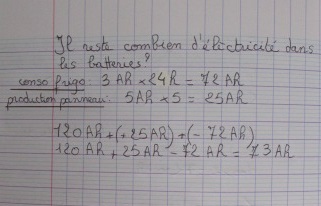 Il reste combien d'électricité dans
les batteries?
conso frigo: 3 AR x 24R = 72AR
production panneau: 5AR x 5 = 25AR
120AR + (+25AR) + (-72AR)
120AR + 25AR - 72AR = 73AR